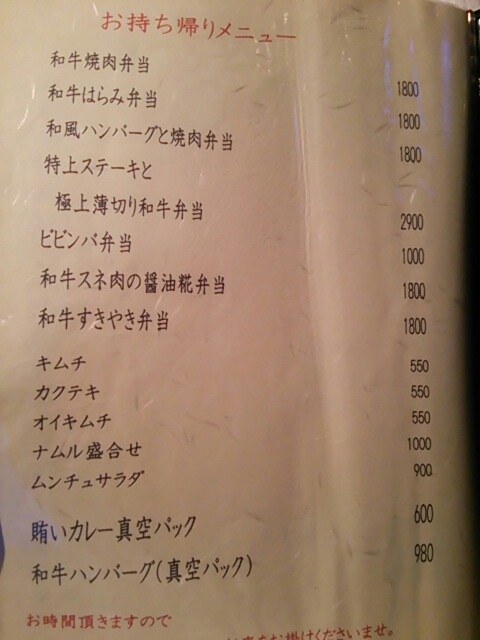 お持ち帰りメニュー
和牛焼肉弁当 1800
和牛はらみ弁当 1800
和風ハンバーグと焼肉弁当 1800
特上ステーキと
極上薄切り和牛弁当 2900
ビビンバ弁当 1000
和牛スネ肉の醤油糀弁当 1800
和牛すきやき弁当 1800
キムチ 550
カクテキ 550
オイキムチ 550
ナムル盛合せ 1000
ムンチュサラダ 900
賄いカレー真空パック 600
和牛ハンバーグ(真空パック) 980
お時間頂きますので
お掛けくださいませ。